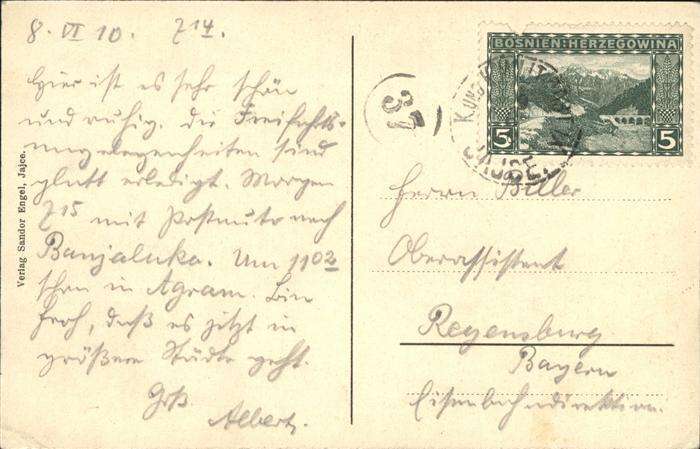 8. VI 10. 7 14.
Hier ist es sehr schön
und ruhig. die Freifahrts-
angelegenheiten sind
glatt erledigt. Morgen
7 15 mit Postauto nach
Banjaluka. Um 11 02
schon in Agram. Bin
froh, daß es jetzt in
größere Städte geht.
Grß.
Albert.
Verlag Sandor Engel, Jajce.
BOSNIEN-HERZEGOWINA
5 5
JAJCE
37
Herrn Biller
Oberassistent
Regensburg
Bayern
Eisenbahndirektion.